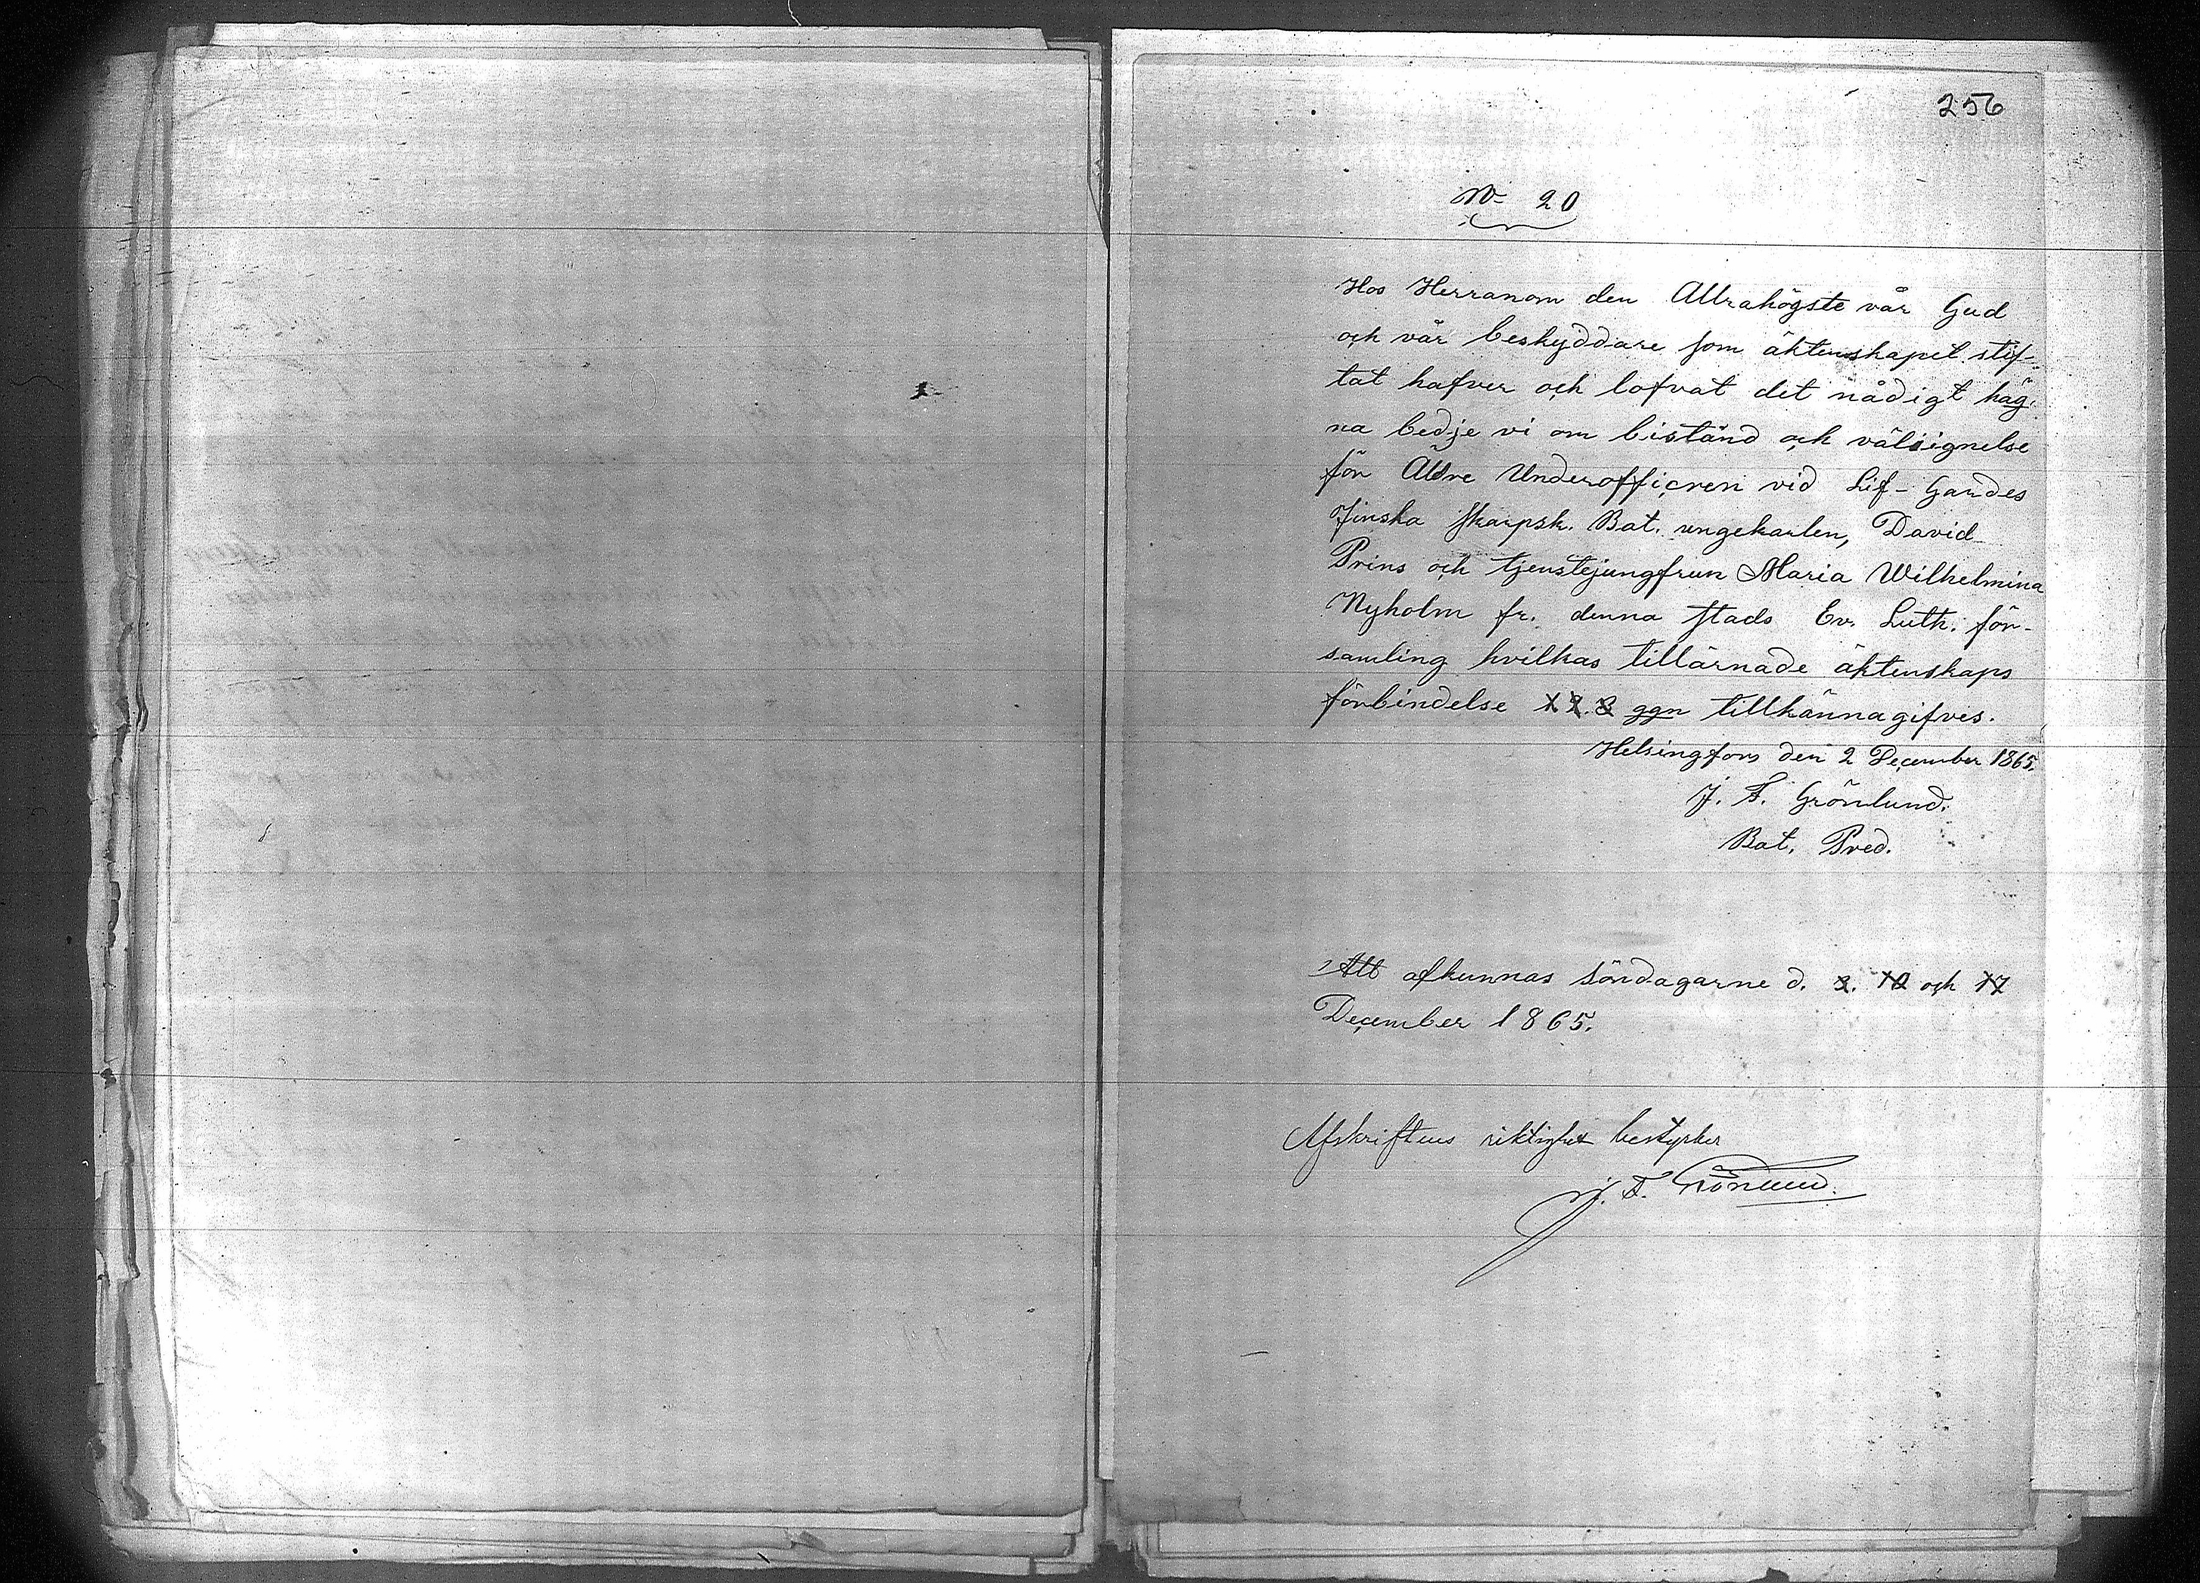 256
No 20
Hos Herranom den Allrahögste vår Gud
och vår beskyddare som äktenskapet stif-
tat hafver och lofvat det nådigt häg-
na bedje vi om bistånd och välsignelse
för Äldre Underofficren vid Lif-Gardes
Finska Skarpsk. Bat. ungekarlen, David
Prins och tjenstejungfrun Maria Wilhelmina
Nyholm fr. denna stads Ev. Luth. för-
samling hvilkas tillärnade äktenskaps
förbindelse 1 2. 3 ggn tillkännagifves.
Helsingfors den 2 December 1865.
J. F. Grönlund.
Bat. Pred.
Att afkunnas söndagarne d. 3. 10 och 17
December 1865.
Afskriftens riktighet bestyrker
J. F. Grönlund.